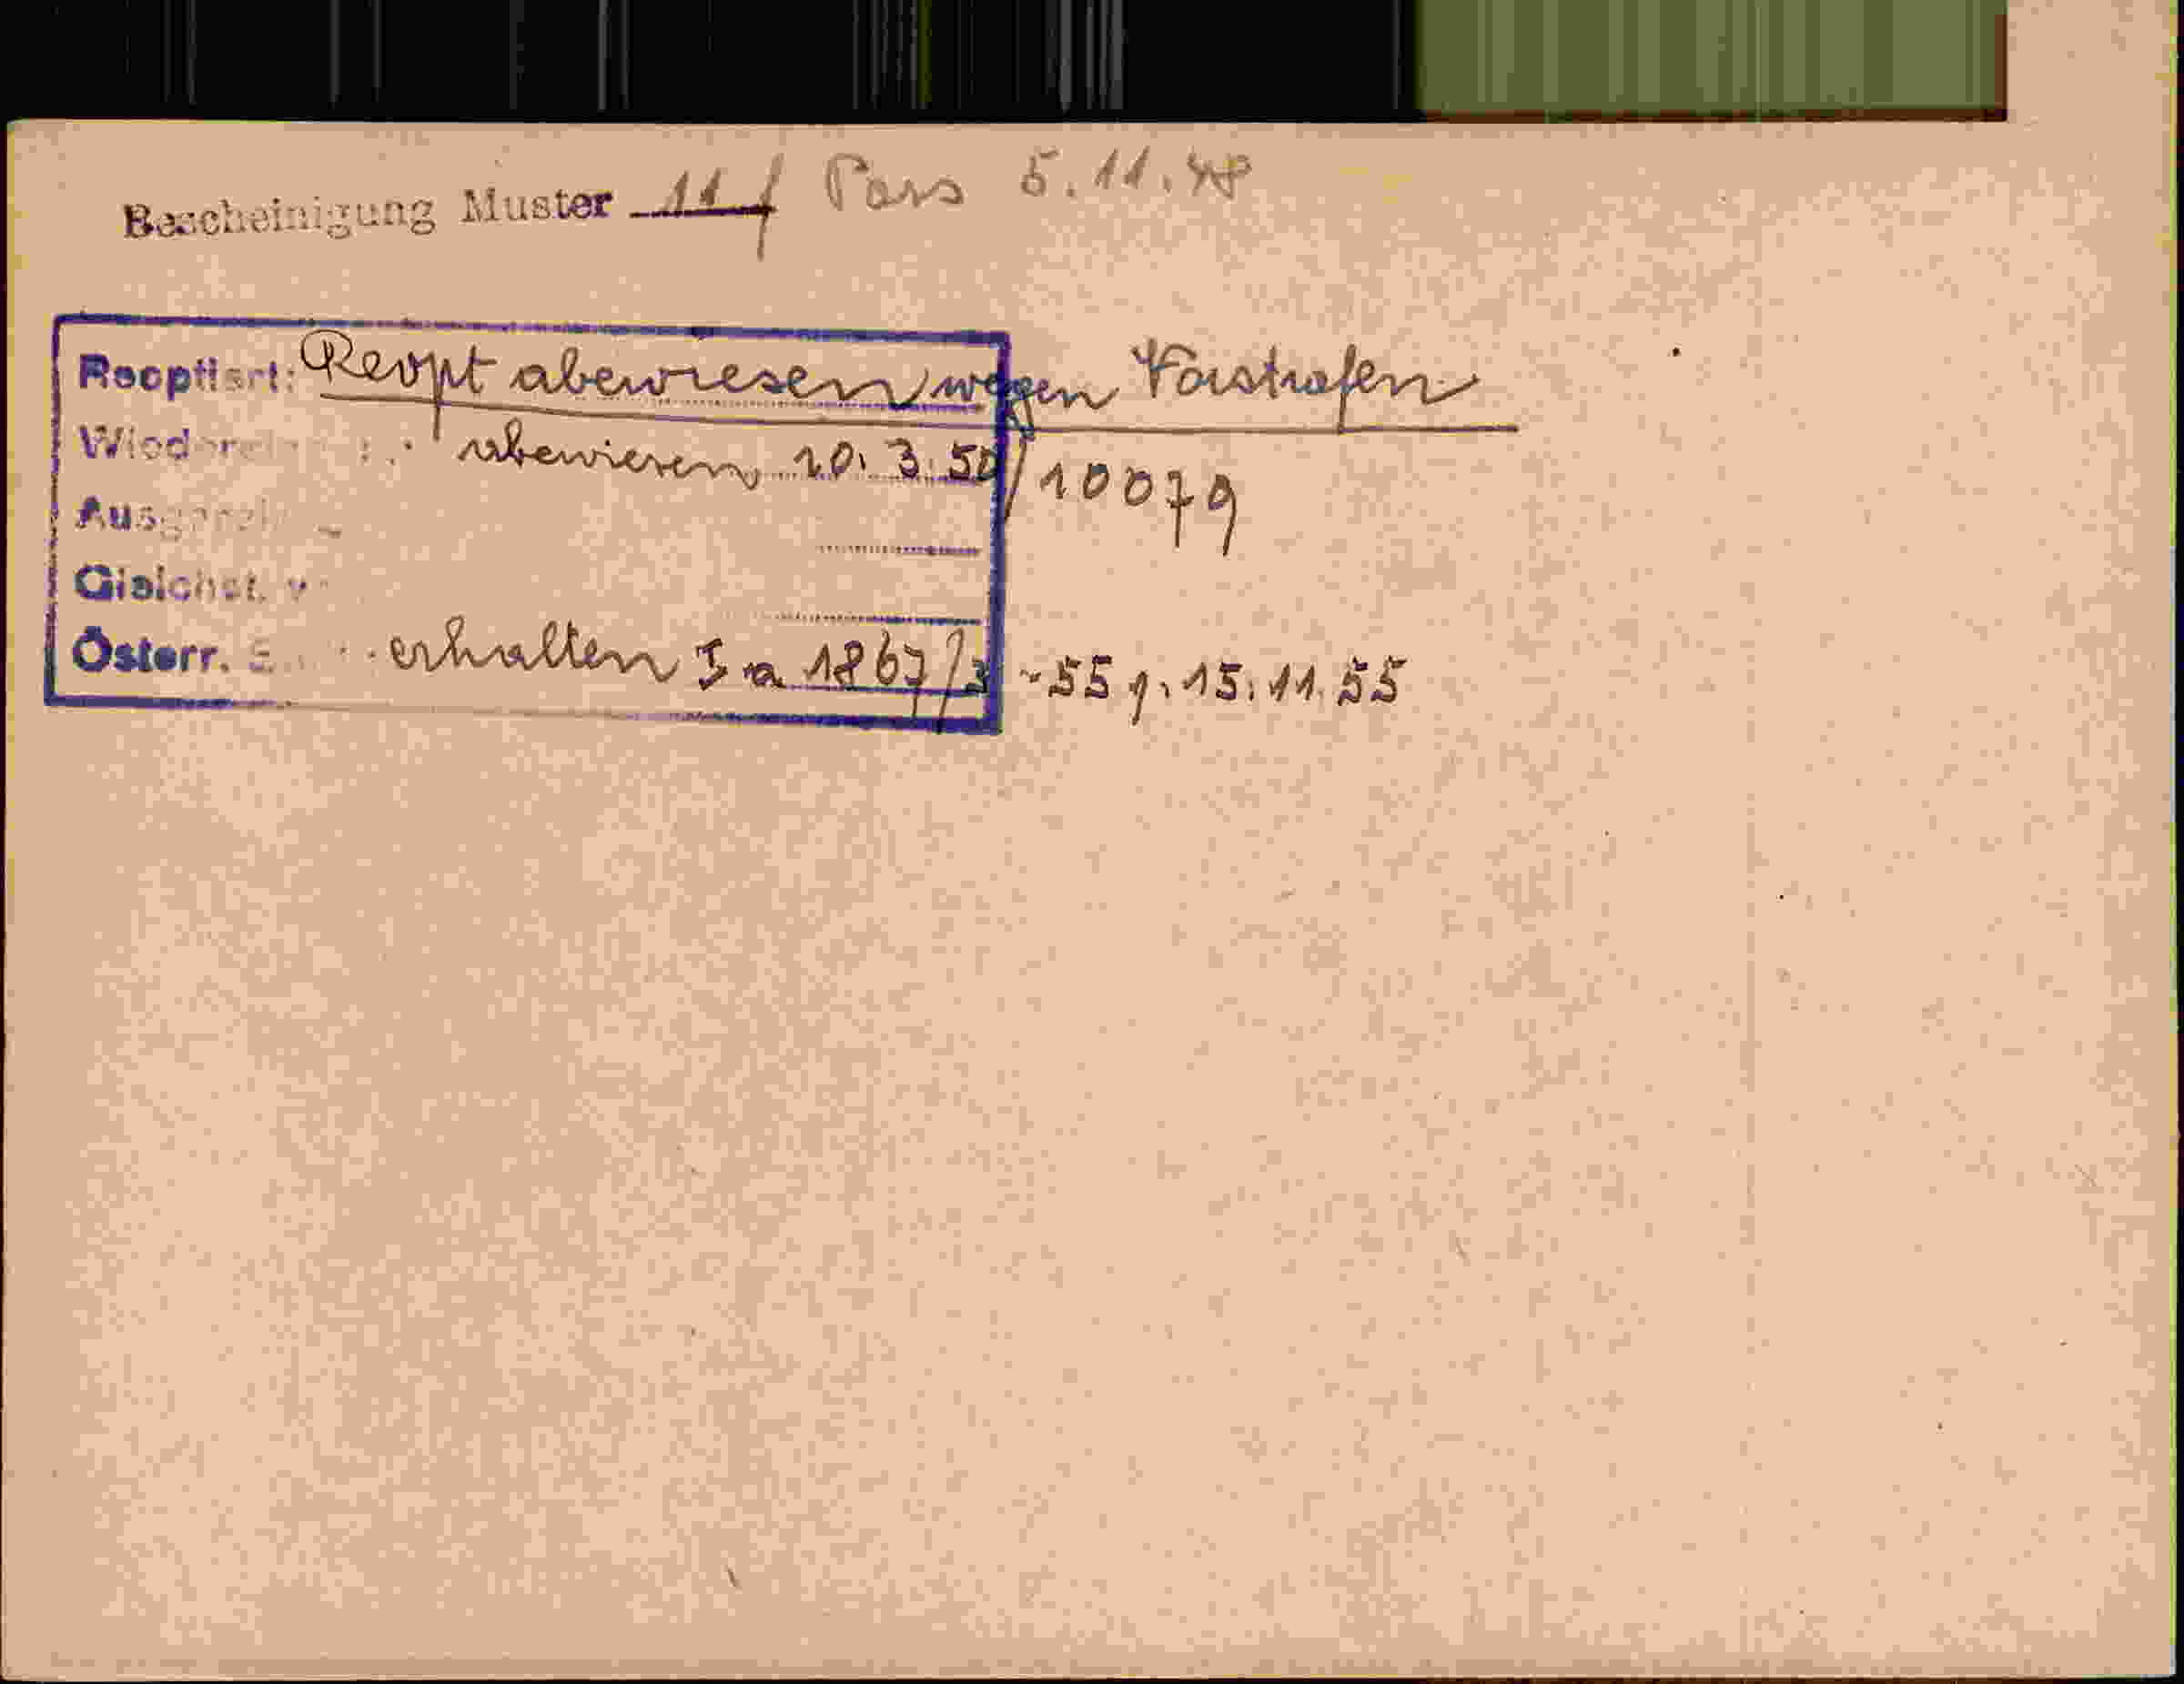 Bescheinigung Muster 11f Pass 5.11.48
Reoptiert: Reopt abewiesen wegen Vorstrafen
abewiesen, 10. 3. 50/10079
Gleichst.
Österr. erhalten I a 1867/3-55 g. 15. 11. 55